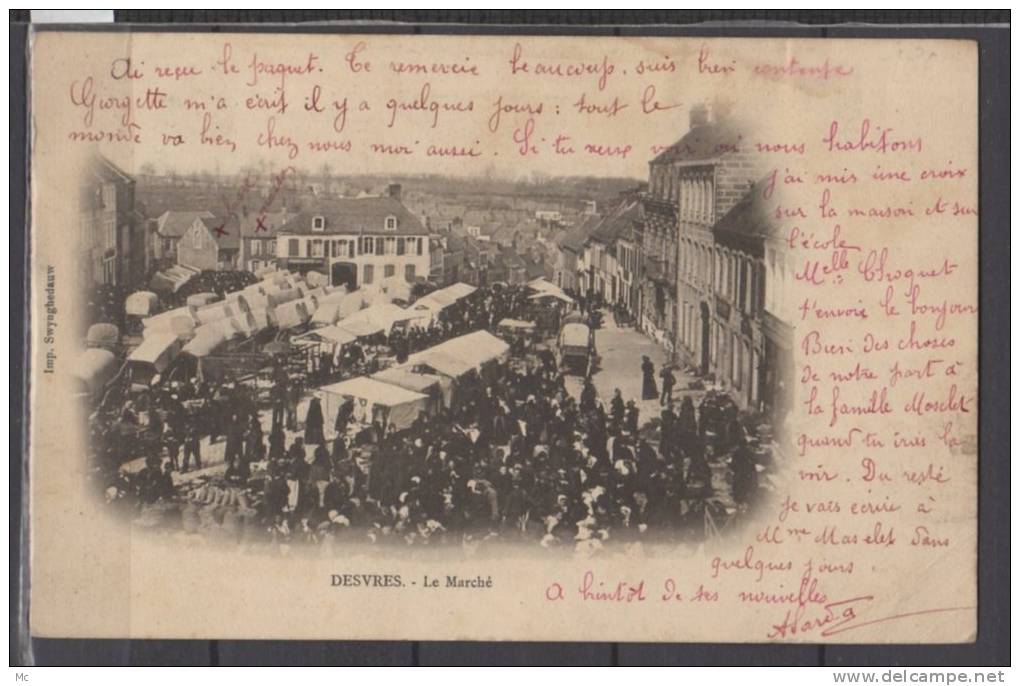 Ai reçu le paquet. Te remercie beaucoup, suis bien contente
Georgette m'a écrit il y a quelques jours : tout le
monde va bien chez nous moi aussi. Si tu veux voir où nous habitons
j'ai mis une croix
sur la maison et sur
l'école
Melle Choquet
t'envoie le bonjour
Bien des choses
de notre part à
la famille Maselet
quand tu iras la
voir. Du reste
je vais écrire à
Mme Maselet dans
quelques jours.
A bientôt de tes nouvelles
x x
Imp. Swynghedauw
DESVRES. - Le Marché
Mc
www.delcampe.net